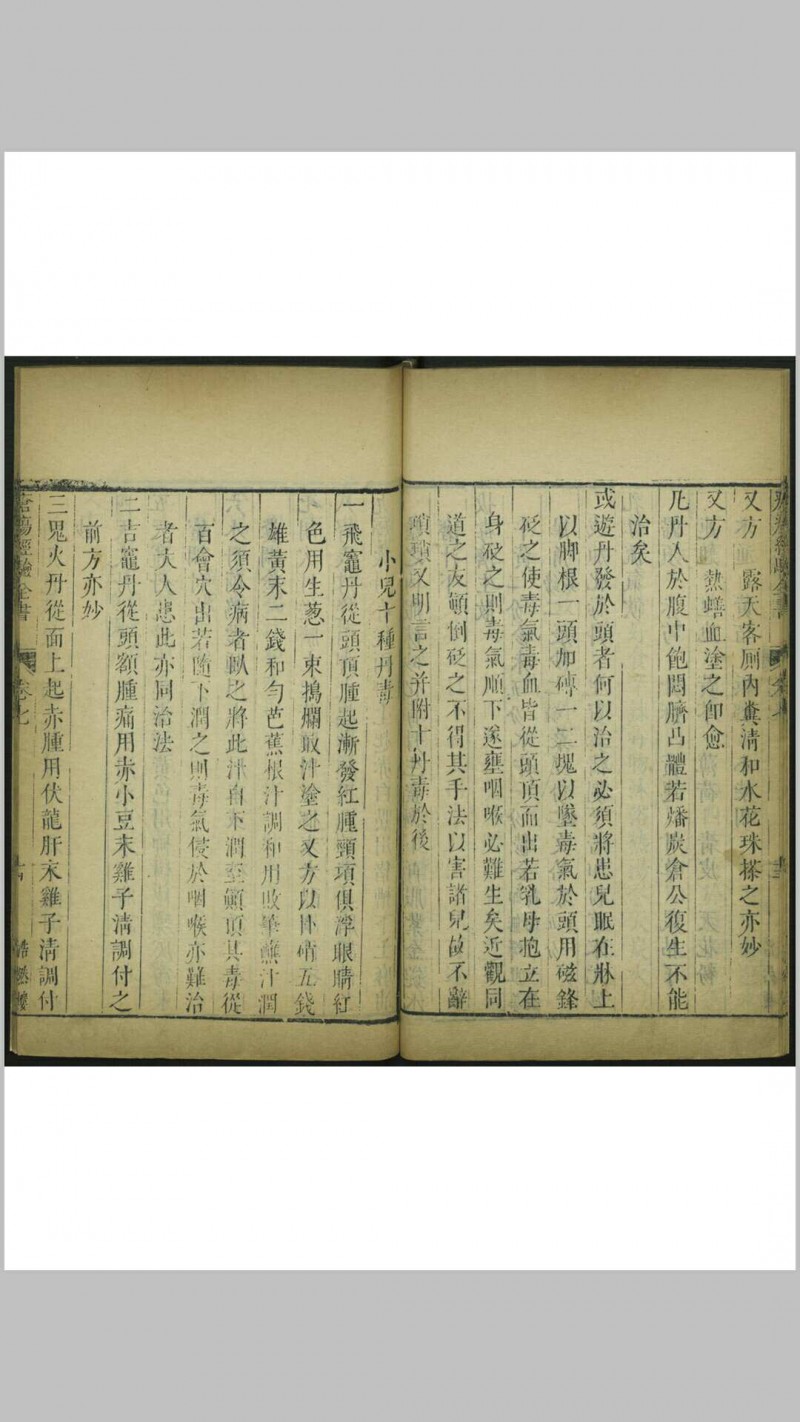 又方　露天客厠內糞清和水花珠搽之亦妙
又方　熱蟮血塗之卽愈
凡丹入於腹中飽悶臍凸體若燔炭倉公復生不能
治矣
或遊丹發於頭者何以治之必須將患兒眠在牀上
以脚根一頭加磚一二塊以墜毒氣於頭用磁鋒
砭之使毒氣毒血皆從頭頂而出若乳母抱立在
身砭之則毒氣順下遂壅咽喉必難生矣近觀同
道之友顛倒砭之不得其手法以害諸兒故不辭
瑣瑣又明言之并附十丹毒於後
小兒十種丹毒
一飛竈丹從頭頂腫起漸發紅腫頭項俱浮眼睛紅
色用生葱一束搗爛取汁塗之又方以朴硝五錢
雄黃末二錢和勻芭蕉根汁調和用敗筆蘸汁潤
之須令病者臥之將此汁自下潤至顚頂其毒從
百會穴出若隨下潤之則毒氣侵於咽喉亦難治
者大人患此亦同治法
二吉竈丹從頭額腫痛用赤小豆末雞子清調付之
前方亦妙
三鬼火丹從面上起赤腫用伏龍肝末雞子清調付
瘍經驗全書　卷七　浩然樓